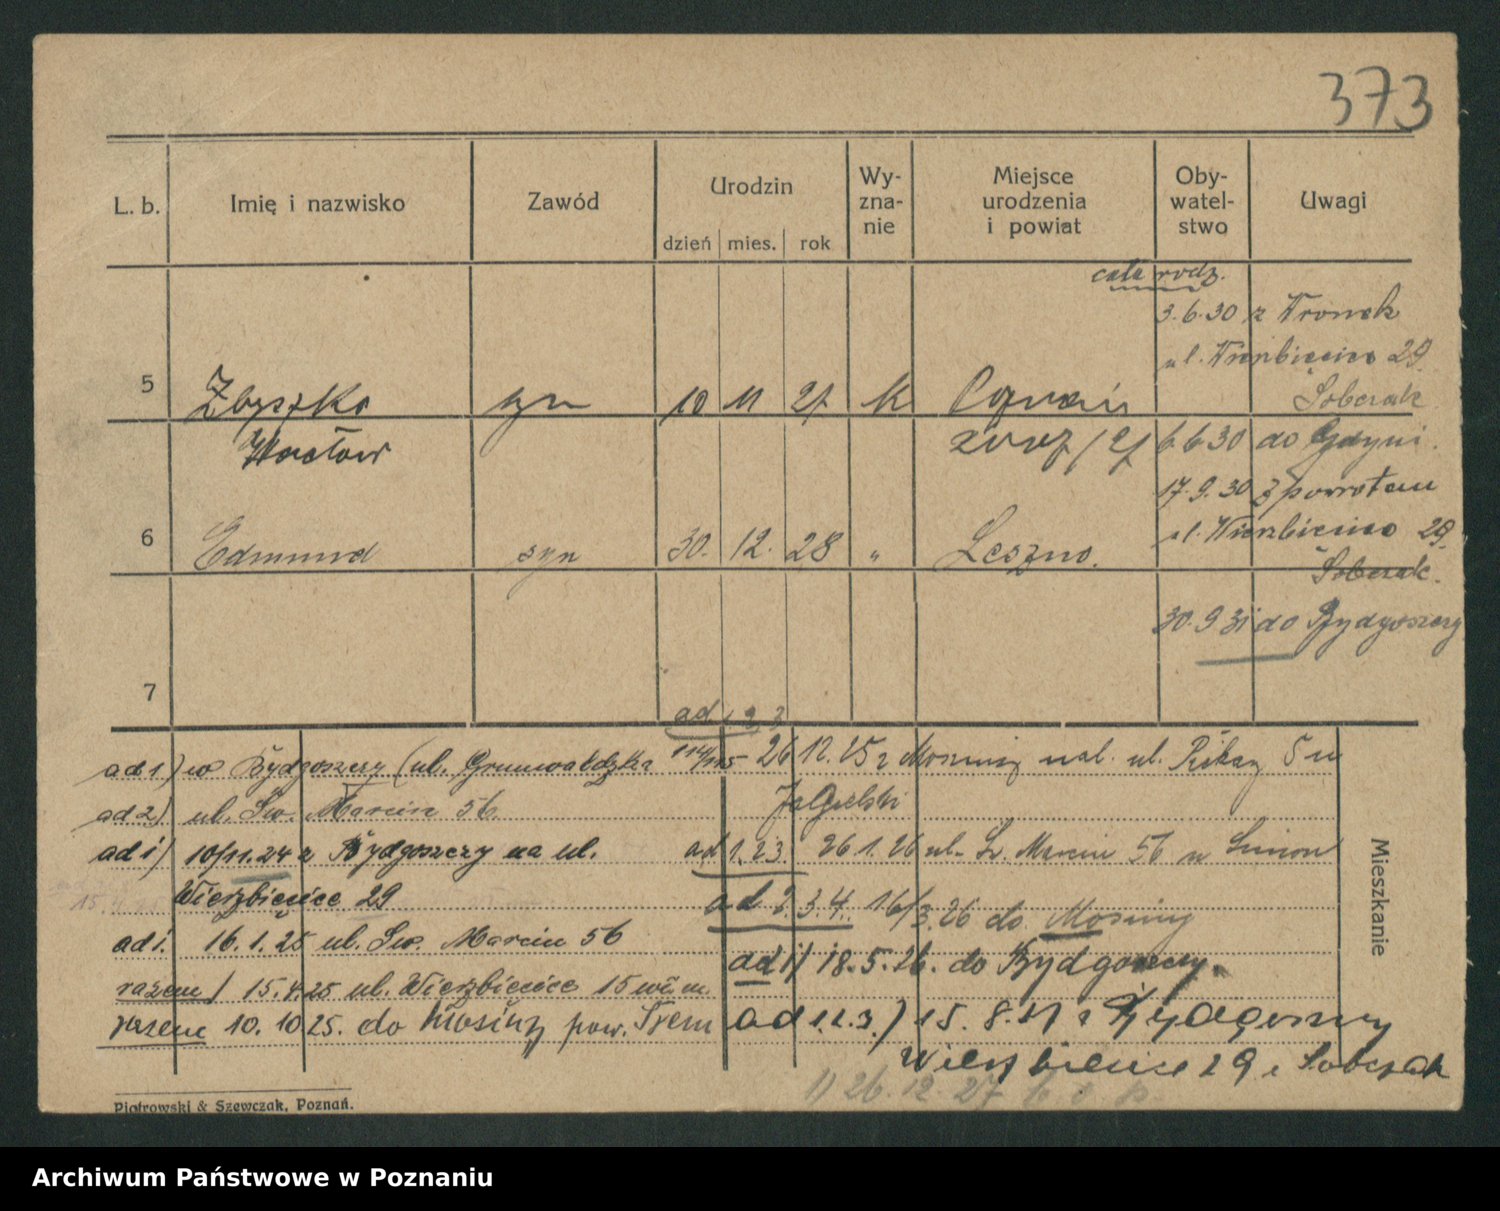 373
L. b. Imię i nazwisko Zawód Urodzin dzień mies. rok Wy- zna- nie Miejsce urodzenia i powiat Oby- watel- stwo Uwagi
cała rodz.
3.6.30 z Wronek
ul. Wierzbięcice 29
Sobczak
5 Zbyszko syn 10 11 27 k Poznań
Wacław
6.6.30 do Gdyni.
17.9.30 z powrotem
ul. Wierzbięcice 29.
6 Edmund syn 30. 12. 28 " Leszno.
Sobczak.
30.9 31 do Bydgoszczy
7
ad 1) w Bydgoszczy (ul. Grunwaldzka 114/115
ad 2) ul. Św. Marcin 56.
ad 1) 10/11.24 z Bydgoszczy na ul.
Wierzbięcice 29
ad 1. 16.1.25 ul. Św. Marcin 56
razem) 15.4.25 ul. Wierzbięcice 15
razem 10.10 25. do Mosiny pow. Śrem
ad 1 2 3
26 12.25 z Mosiny ul.
ad 1.2.3. 26.1.26 ul. Św. Marcin 56 u
ad 2.3.4. 16/3.26 do Mosiny
ad 1) 18.5.26. do Bydgoszczy.
ad 1.2.3.) 15.8.27 z Bydgoszczy
Wierzbięcice 29 Sobczak
1) 26.12.27
Mieszkanie
Piotrowski & Szewczak, Poznań.
Archiwum Państwowe w Poznaniu